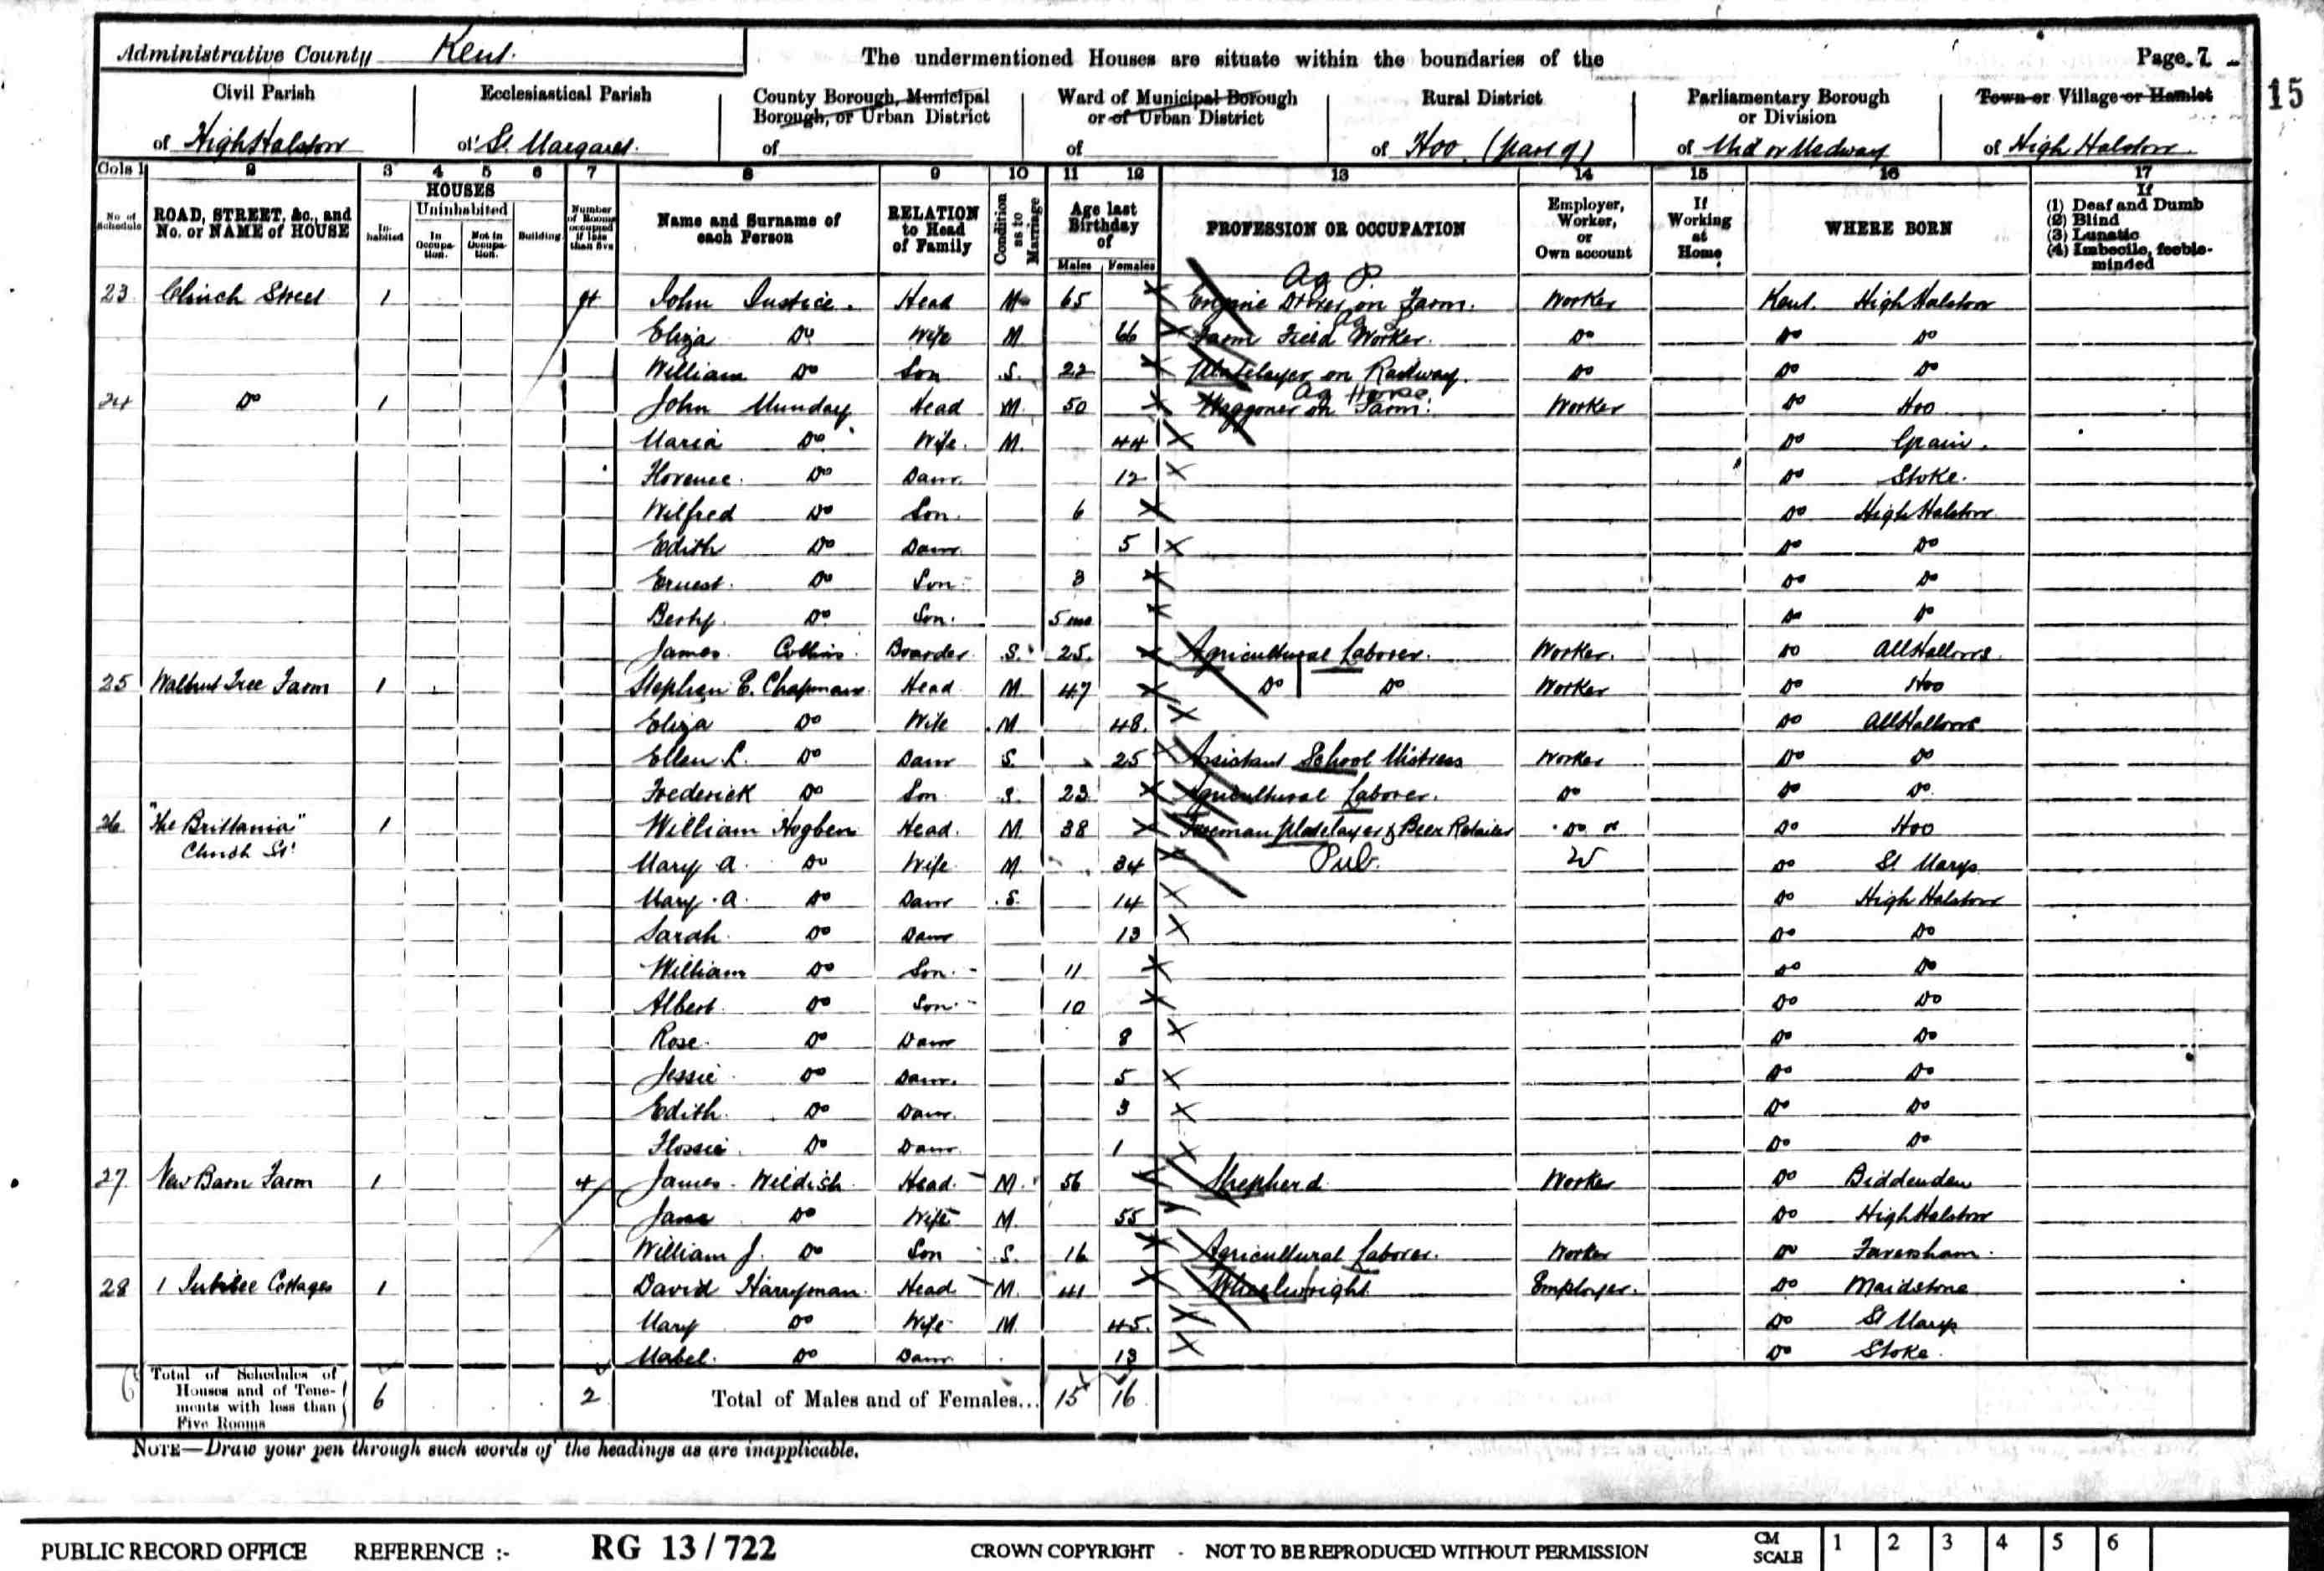 Administrative County Kent. The undermentioned Houses are situate within the boundaries of the Page 7
15
Civil Parish of High Halstow
Ecclesiastical Parish of St. Margaret.
County Borough, Municipal Borough, or Urban District of
Ward of Municipal Borough or of Urban District of
Rural District of Hoo (part of)
Parliamentary Borough or Division of Mid or Medway
Town or Village or Hamlet of High Halstow.
Cols 1 2 3 4 5 6 7 8 9 10 11 12 13 14 15 16 17
No. of Schedule
ROAD, STREET, &c., and No. or NAME of HOUSE
HOUSES
In-habited
Uninhabited
In Occupa-tion.
Not in Occupa-tion.
Building
Number of Rooms occupied if less than five
Name and Surname of each Person
RELATION to Head of Family
Condition as to Marriage
Age last Birthday of
Males Females
PROFESSION OR OCCUPATION
Employer, Worker, or Own account
If Working at Home
WHERE BORN
If (1) Deaf and Dumb (2) Blind (3) Lunatic (4) Imbecile, feeble-minded
Ag P.
23 Clinch Street 1 4 John Justice. Head M 65 Engine Driver on Farm. Worker Kent. High Halstow
Ag
Eliza Do Wife M 66 Farm Field Worker. Do Do Do
William Do Son S. 22 Platelayer on Railway. Do Do Do
Ag Horse
24 Do 1 John Munday Head M 50 Waggoner on Farm. Worker Do Hoo
Maria Do Wife. M. 44 Do Grain.
Florence Do Daur. 12 Do Stoke.
Wilfred Do Son. 6 Do High Halstow
Edith Do Daur. 5 Do Do
Ernest. Do Son. 3 Do Do
Do Son. 5 mo Do Do
James Collins Boarder S. 25. Agricultural Laborer. Worker. Do All Hallows
25 Walnut Tree Farm 1 Stephen E. Chapman Head M 47 Do Do Worker Do Hoo
Eliza Do Wife M 48. Do All Hallows
Ellen L. Do Daur S. 25 Assistant School Mistress Worker Do Do
Frederick Do Son S. 23 Agricultural Laborer. Do Do Do
26 "The Brittania" 1 William Hogben Head. M. 38 Foreman Platelayer & Beer Retailer Do Do Hoo
Clinch St.
Mary A. Do Wife M. 34 Pub. W Do St Marys
Mary A. Do Daur S. 14 Do High Halstow
Sarah. Do Daur 13 Do Do
William Do Son. 11 Do Do
Albert. Do Son. 10 Do Do
Rose. Do Daur 8 Do Do
Jessie Do Daur. 5 Do Do
Edith. Do Daur. 3 Do Do
Flossie. Do Daur. 1 Do Do
27 New Barn Farm 1 4 James Wildish Head M. 56 Shepherd Worker Do Biddenden
Jane Do Wife M. 55 Do High Halstow
William J. Do Son S. 16 Agricultural Laborer. Worker Do Faversham.
28 1 Jubilee Cottages 1 David Harryman Head M. 41 Wheelwright Employer. Do Maidstone
Mary Do Wife M. 45. Do St Marys
Mabel. Do Daur. 13 Do Stoke.
6 Total of Schedules of Houses and of Tene-ments with less than Five Rooms 6 2 Total of Males and of Females... 15 16
NOTE—Draw your pen through such words of the headings as are inapplicable.
PUBLIC RECORD OFFICE REFERENCE :- RG 13 / 722 CROWN COPYRIGHT - NOT TO BE REPRODUCED WITHOUT PERMISSION CM SCALE 1 2 3 4 5 6